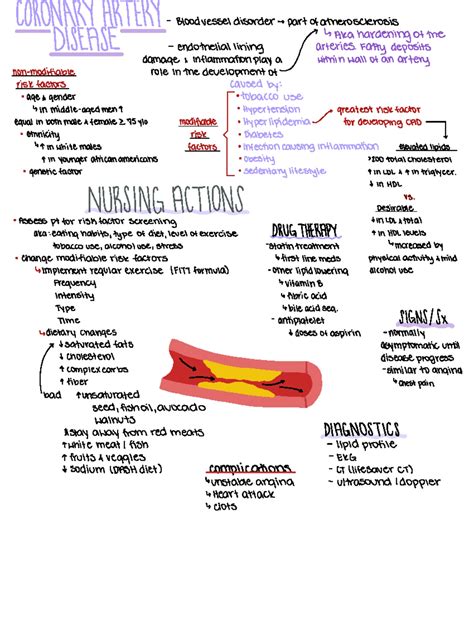 CORONARY ARTERY
DISEASE
- Blood vessel disorder → part of atherosclerosis
↳ Aka hardening of the
arteries. Fatty deposits
within wall of an artery
- endothelial lining
damage & inflammation play a
role in the development of
non-modifiable
risk factors
• age & gender
↳ in middle-aged men ↑
equal in both male & female ≥ 75 y/o
• ethnicity
↳ ↑ in white males
↑ in younger african americans
• genetic factor
modifiable
risk
factors
caused by:
• tobacco use
• Hypertension
• Hyperlipidemia
• Diabetes
• infection causing inflammation
• obesity
• sedentary lifestyle
greatest risk factor
for developing CAD
Elevated lipids
>200 total cholesterol
↑ in LDL & ↑ in triglycer.
↓ in HDL
vs.
Desirable
↓ in LDL & total
↑ in HDL levels
↳ increased by
physical activity & mild
alcohol use
NURSING ACTIONS
• Assess pt for risk factor screening
aka: eating habits, type of diet, level of exercise
tobacco use, alcohol use, stress
• change modifiable risk factors
↳ implement regular exercise (FITT formula)
Frequency
Intensity
Type
Time
↳ dietary changes
↓ saturated fats
↓ cholesterol
↑ complex carbs
↑ fiber
bad ↑ unsaturated
seed, fish oil, avocado
walnuts
* stay away from red meats
↑ white meat / fish
↑ fruits & veggies
↓ sodium (DASH diet)
DRUG THERAPY
- statin treatment
↳ first line meds
- other lipid lowering
↳ vitamin B
↳ fibric acid
↳ bile acid seq.
- antiplatelet
↓ doses of aspirin
SIGNS/SX
- normally
asymptomatic until
disease progress
- similar to angina
↳ chest pain
DIAGNOSTICS
- lipid profile
- EKG
- CT (lifesaver CT)
- ultrasound/doppler
complications
↳ unstable angina
↳ Heart attack
↳ clots